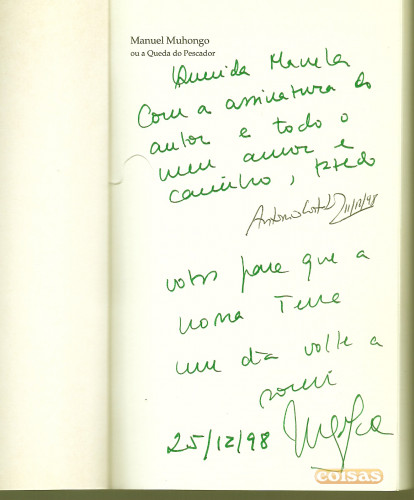 Manuel Muhongo
ou a Queda do Pescador
Querida Manela
Com a assinatura do
autor e todo o
meu amor e
carinho,
António 11/12/98
votos para que a
nossa Terra
um dia volte a
sorrir
25/12/98
coisas